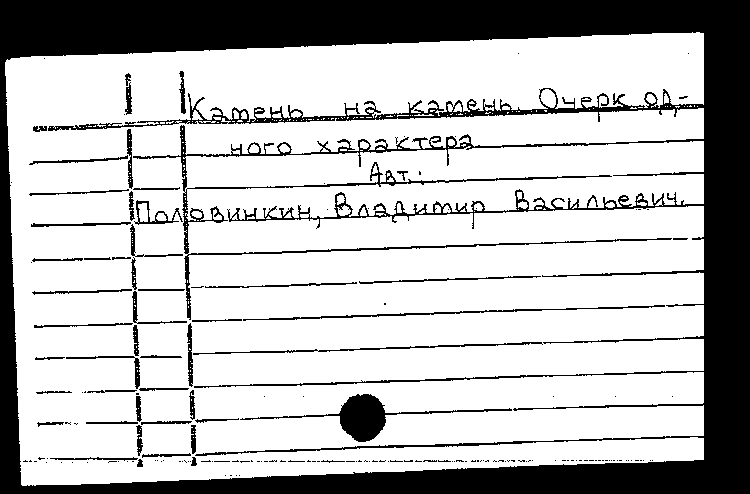 Камень на камень. Очерк од-
ного характера
Авт.:
Половинкин, Владимир Васильевич.